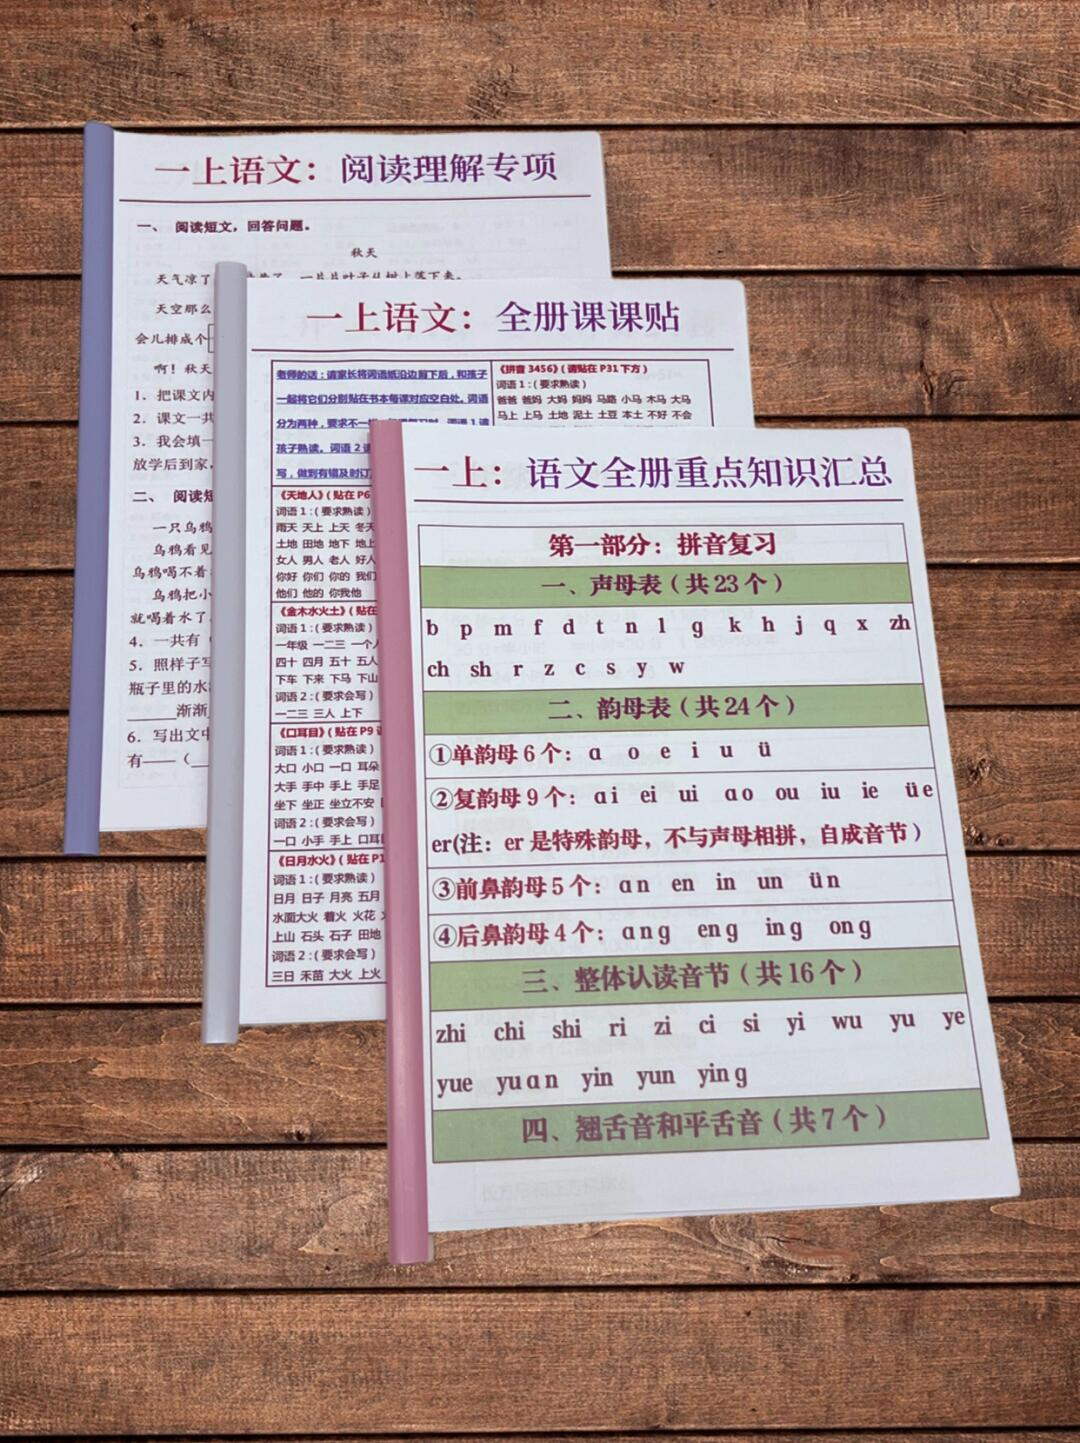 一上语文：阅读理解专项
一、 阅读短文，回答问题。
秋天
天气凉了
一片片叶子从树上落下来。
天空那么
会儿排成个
啊！秋天
1. 把课文内
2. 课文一共
3. 我会填一
放学后到家，
二、 阅读短
一只乌鸦
乌鸦看见
乌鸦喝不着
乌鸦把小
就喝着水了。
4. 一共有（
5. 照样子写
瓶子里的水
渐渐
6. 写出文中
有——（
一上语文：全册课课贴
老师的话：请家长将词语纸沿边剪下后，和孩子
一起将它们分别贴在书本每课对应空白处。词语
分为两种，要求不一
词语1请
孩子熟读。词语2请
写，做到有错及时订
《天地人》（贴在P6
词语1：（要求熟读）
雨天 天上 上天 冬天
土地 田地 地下 地上
女人 男人 老人 好人
你好 你们 你的 我们
他们 他的 你我他
《金木水火土》（贴在
词语1：（要求熟读）
一年级 一二三 一个人
四十 四月 五十 五人
下车 下来 下马 下山
词语2：（要求会写）
一二三 三人 上下
《口耳目》（贴在P9
词语1：（要求熟读）
大口 小口 一口 耳朵
大手 手中 手上 手足
坐下 坐正 坐立不安
词语2：（要求会写）
一口 小手 手上 口耳目
《日月水火》（贴在P1
词语1：（要求熟读）
日月 日子 月亮 五月
水面大火 着火 火花
上山 石头 石子 田地
词语2：（要求会写）
三日 禾苗 大火 上火
《拼音3456》（请贴在P31下方）
词语1：（要求熟读）
爸爸 爸妈 大妈 妈妈 马路 小马 木马 大马
马上 上马 土地 泥土 土豆 本土 不好 不会
一上：语文全册重点知识汇总
第一部分：拼音复习
一、声母表（共23个）
b p m f d t n l g k h j q x zh
ch sh r z c s y w
二、韵母表（共24个）
①单韵母6个：ɑ o e i u ü
②复韵母9个：ɑi ei ui ɑo ou iu ie üe
er(注：er是特殊韵母，不与声母相拼，自成音节）
③前鼻韵母5个：ɑn en in un ün
④后鼻韵母4个：ɑng eng ing ong
三、整体认读音节（共16个）
zhi chi shi ri zi ci si yi wu yu ye
yue yuɑn yin yun ying
四、翘舌音和平舌音（共7个）